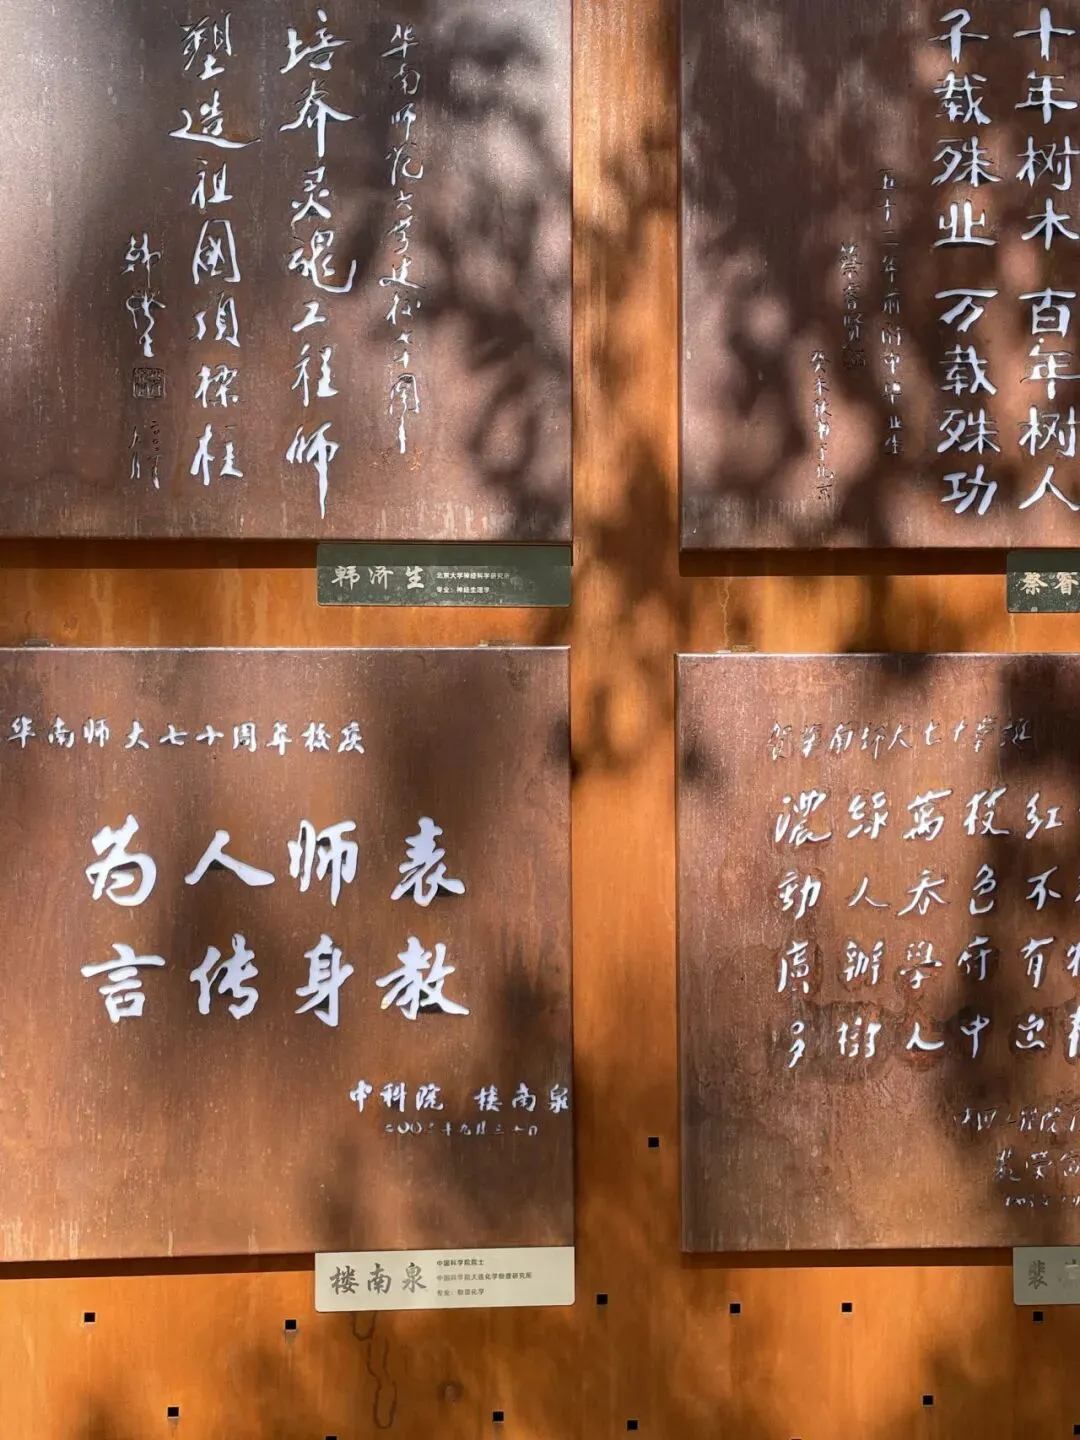 华南师范大学建校七十周年
培养灵魂工程师
塑造祖国顶梁柱
韩济生
二〇〇三
九月
韩济生
北京大学神经科学研究所
专业：神经生理学
十年树木 百年树人
千载殊业 万载殊功
五十二年前附中毕业生
蔡睿贤
癸未秋书于北京
蔡睿
华南师大七十周年校庆
为人师表
言传身教
中科院 楼南泉
二〇〇三年九月三十日
楼南泉
中国科学院院士
中国科学院大连化学物理研究所
专业：物理化学
贺华南师大七十华诞
浓绿万枝红
动人春色不
广办学府有
多树人中出
中国工程院
裴荣富
裴